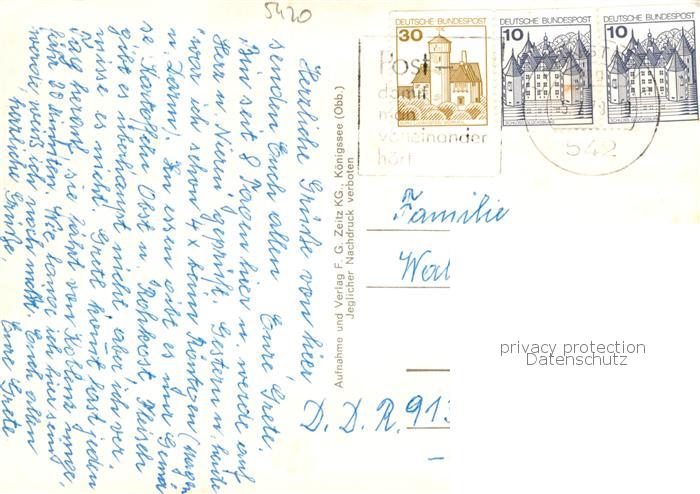 5420
DEUTSCHE BUNDESPOST
30
DEUTSCHE BUNDESPOST
10
SCHLOSS GLÜCKSBURG
DEUTSCHE BUNDESPOST
10
SCHLOSS GLÜCKSBURG
Post
damit
man
voneinander
hört
542
Herzliche Grüße von hier
senden Euch allen Eure Grete.
Bin seit 8 Tagen hier u. werde auf
Herz u. Nieren geprüft. Gestern u. heute
war ich schon 4x beim Röntgen (Magen
u. Darm). Zu essen gibt es nur Gemü
se, Kartoffeln, Obst u. Rohkost. Fleisch
gibt es überhaupt nicht, aber ich ver
misse es nicht. Grete kommt fast jeden
Tag herauf, sie fährt von Koblenz unge
fähr 20 Minuten. Wie lange ich hier sein
werde, weiß ich noch nicht. Euch allen
herzliche Grüße,
Eure Grete
Aufnahme und Verlag F. G. Zeitz KG., Königssee (Obb.)
Jeglicher Nachdruck verboten
Familie
D.D.R. 913
privacy protection
Datenschutz